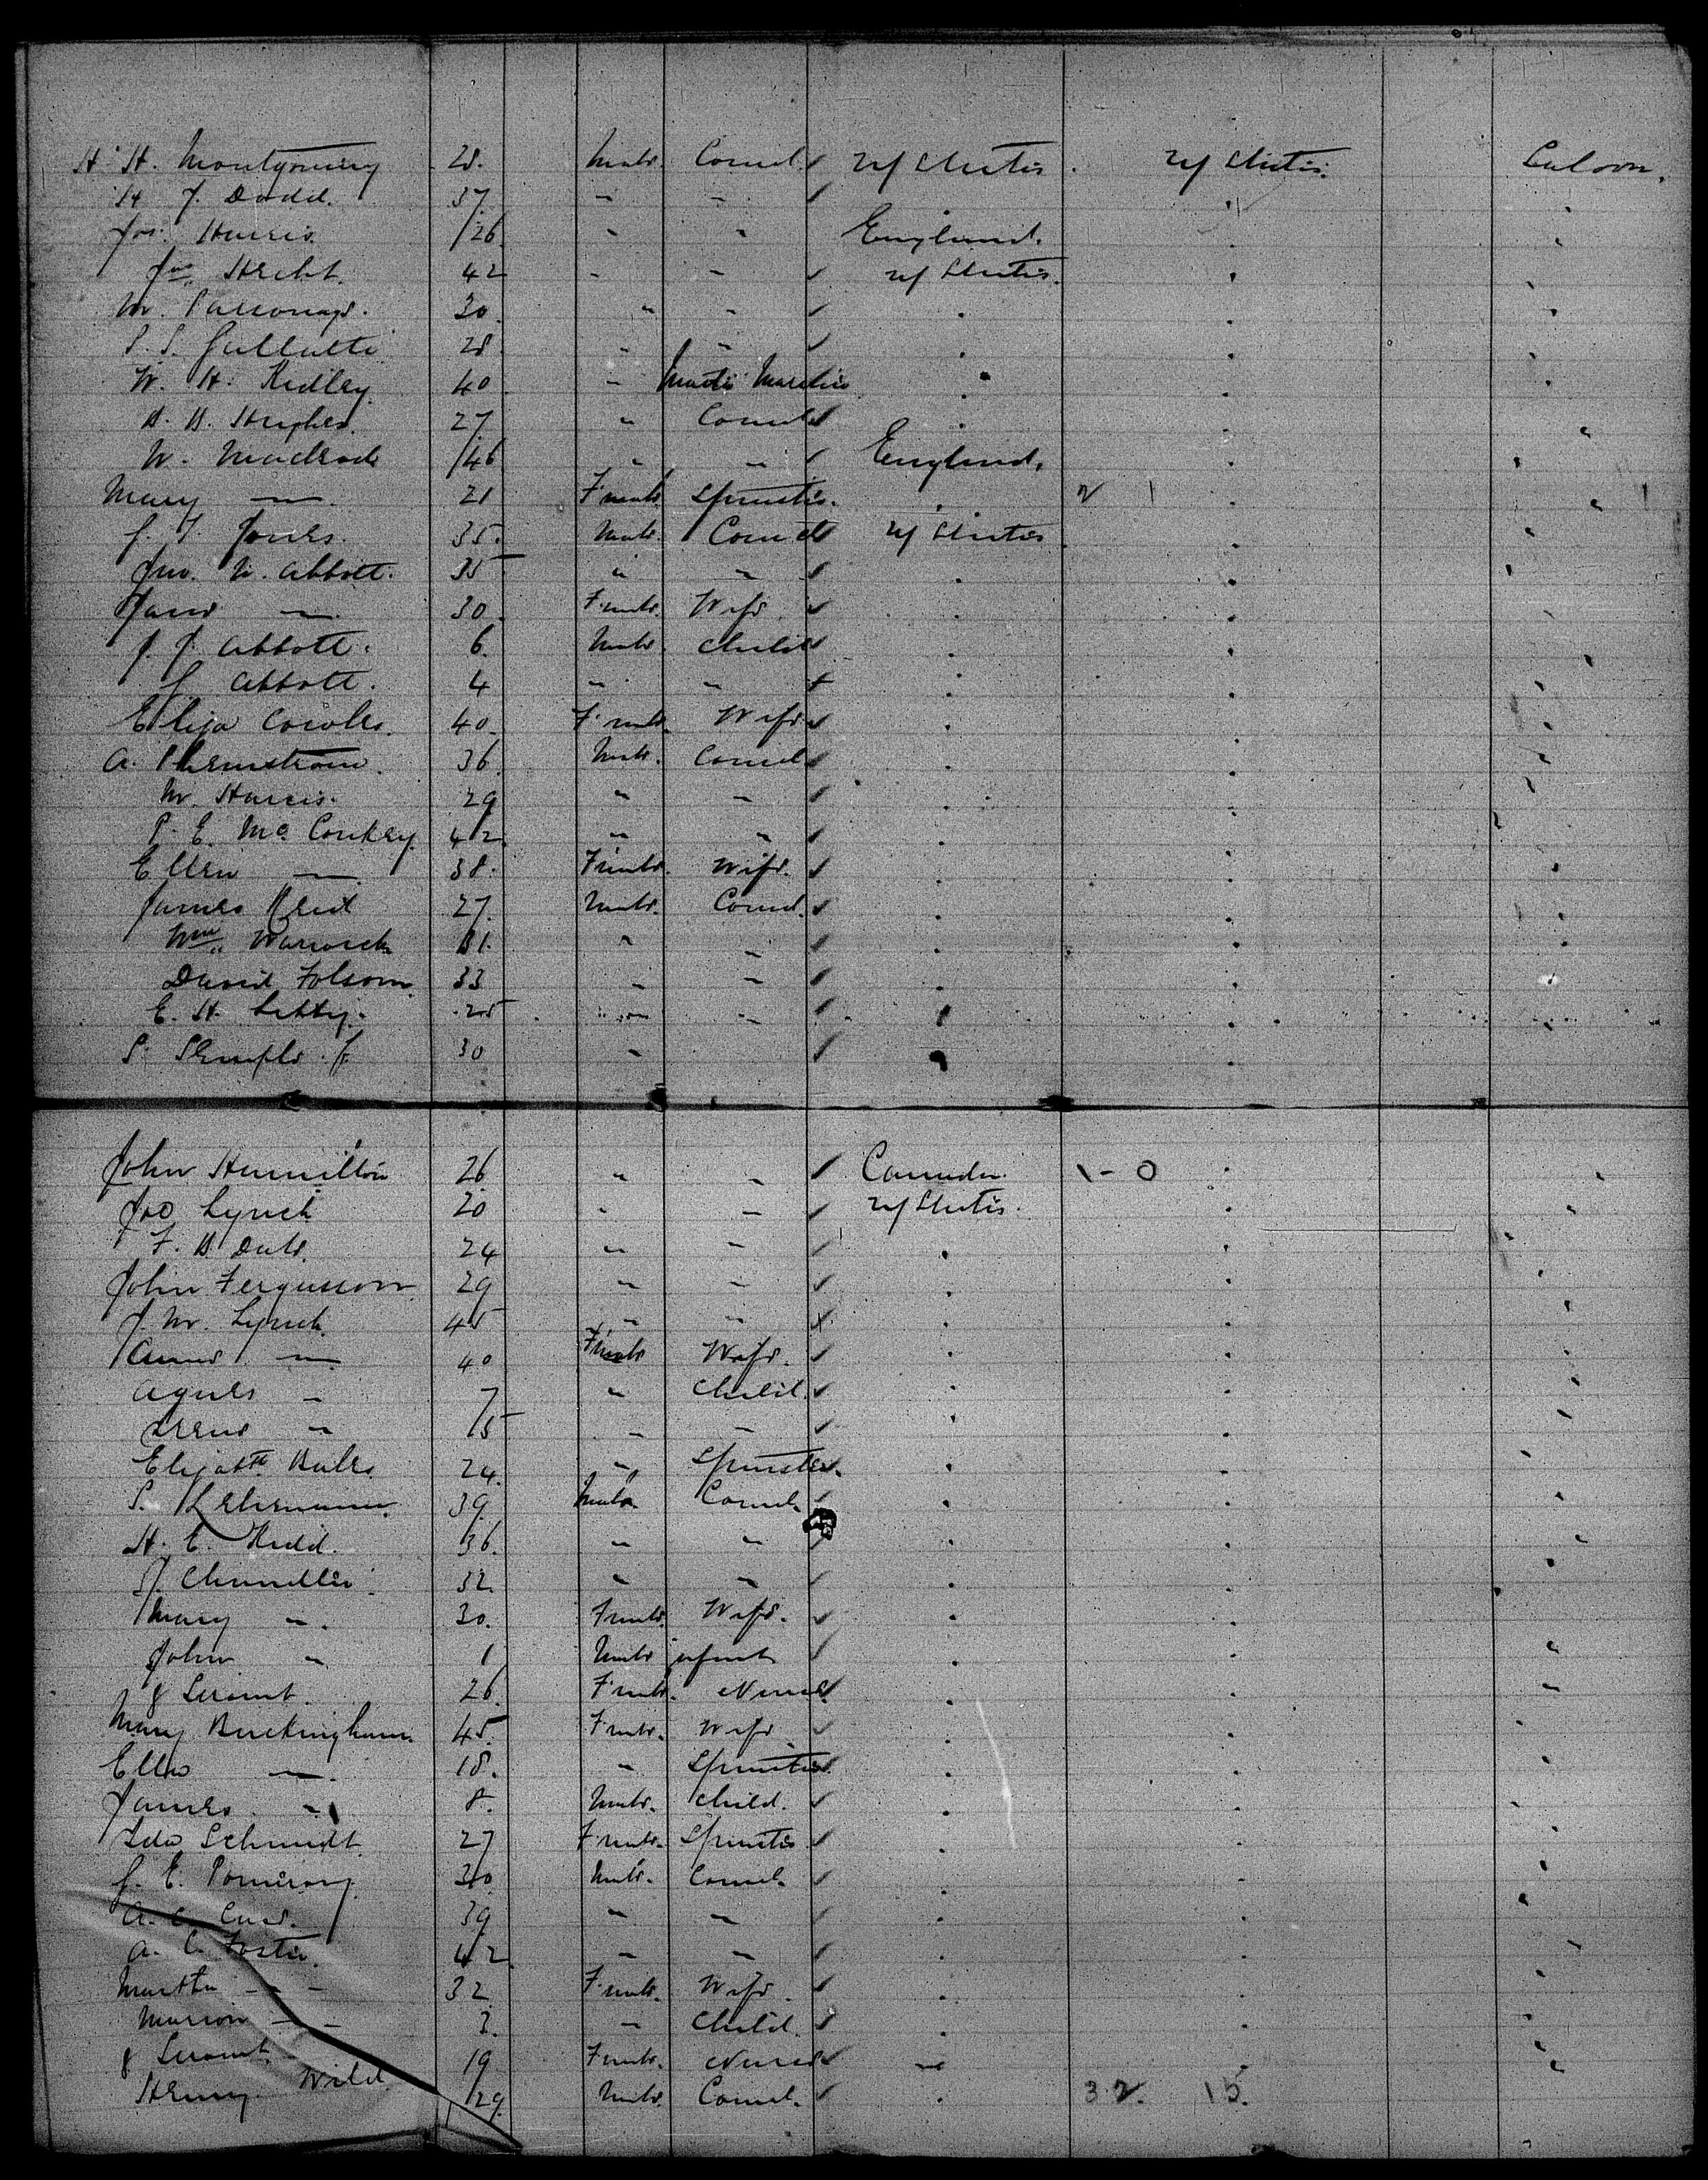 H. H. Montgomery 28. Male. Comcl. U/ States. U/ States. Saloon.
H J. Dodd. 37. " "
Jos. Harris. 26. " " England.
Jos. Hecht. 42 - - U/ States.
W. Parsonage. 30. " "
28. " "
W. H. Ridley. 40. " Master Mariner
H. H. Hughes. 27. " Comcl.
W. 46 " " England.
Mary — 21 Female Spinster. 2 1 1
J. T. Jones. 35. Male. Comcl U/ States
Jno. W. Abbott. 35 " "
Jane — 30. Female. Wife.
J. J. Abbott. 6. Male. Child
J Abbott. 4 " "
Eliza Cowles. 40. Female Wife
A. 36. Male. Comcl
W. Harris. 29 " "
P. E. McConkey. 42 " "
Ellen — 38. Female. Wife.
James Reid 27. Male. Comcl.
Wm. Warwick 31. " "
David Folsom. 33 " "
E. H. 25 " "
S. Semple Jr 30 "
John Hamilton 26. " " Canada. 1 - 0
Joe Lynch 20 " " U/ States.
F. H. Dale 24 " "
John Fergusson 29 " "
J. W. Lynch. 45 " "
Anne — 40 Female Wife.
Agnes " 7 " Child.
Irene " 5 " "
Elizabth Bates 24. " Spinster.
S. Lehrmann. 39. Male. Comcl.
H. E. Kidd. 36. " "
J. Chandler. 32. " "
Mary " 30. Female. Wife.
John " 1 Male infant
& Servant. 26. Female. Nurse
Mary Buckingham. 45. Female. Wife
Ella — 18. " Spinster
James " 8. Male. Child.
Ida Schmidt. 27 Female. Spinster
J. E. Pomeroy. 30 Male. Comcl.
A. C. 39 " "
A. C. Foster. 42 " "
Martha " 32 Female. Wife.
Marion " 3. " Child.
& Servant. 19 Female. Nurse
Henry Wild. 29. Male. Comcl. 32. 15.